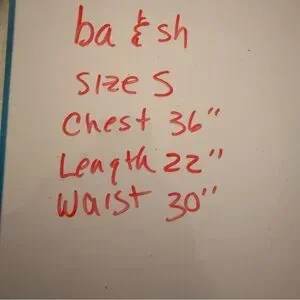 ba & sh
Size S
Chest 36"
Length 22"
Waist 30"